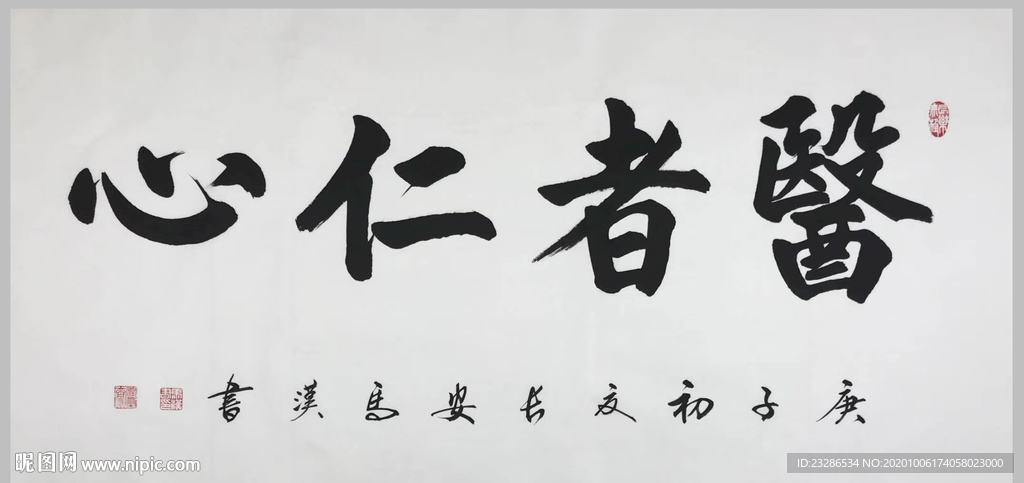 醫者仁心
庚子初夏長安馬漢書
昵图网 www.nipic.com
ID:23286534 NO:20201006174058023000